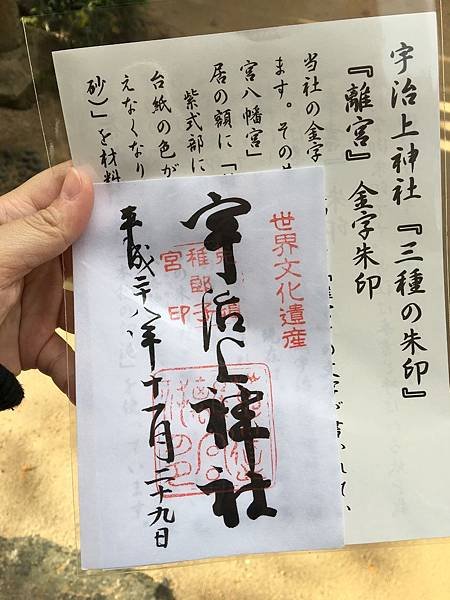 宇治上神社『三種の朱印』
『離宮』金字朱印
当社の金字
ます。その
宮八幡宮」
居の額に「
紫式部に
台紙の色が
えなくなり
砂)」を材料
世界文化遺産
宇治上神社
稚郎子
宮印
平成二八年十一月二十九日